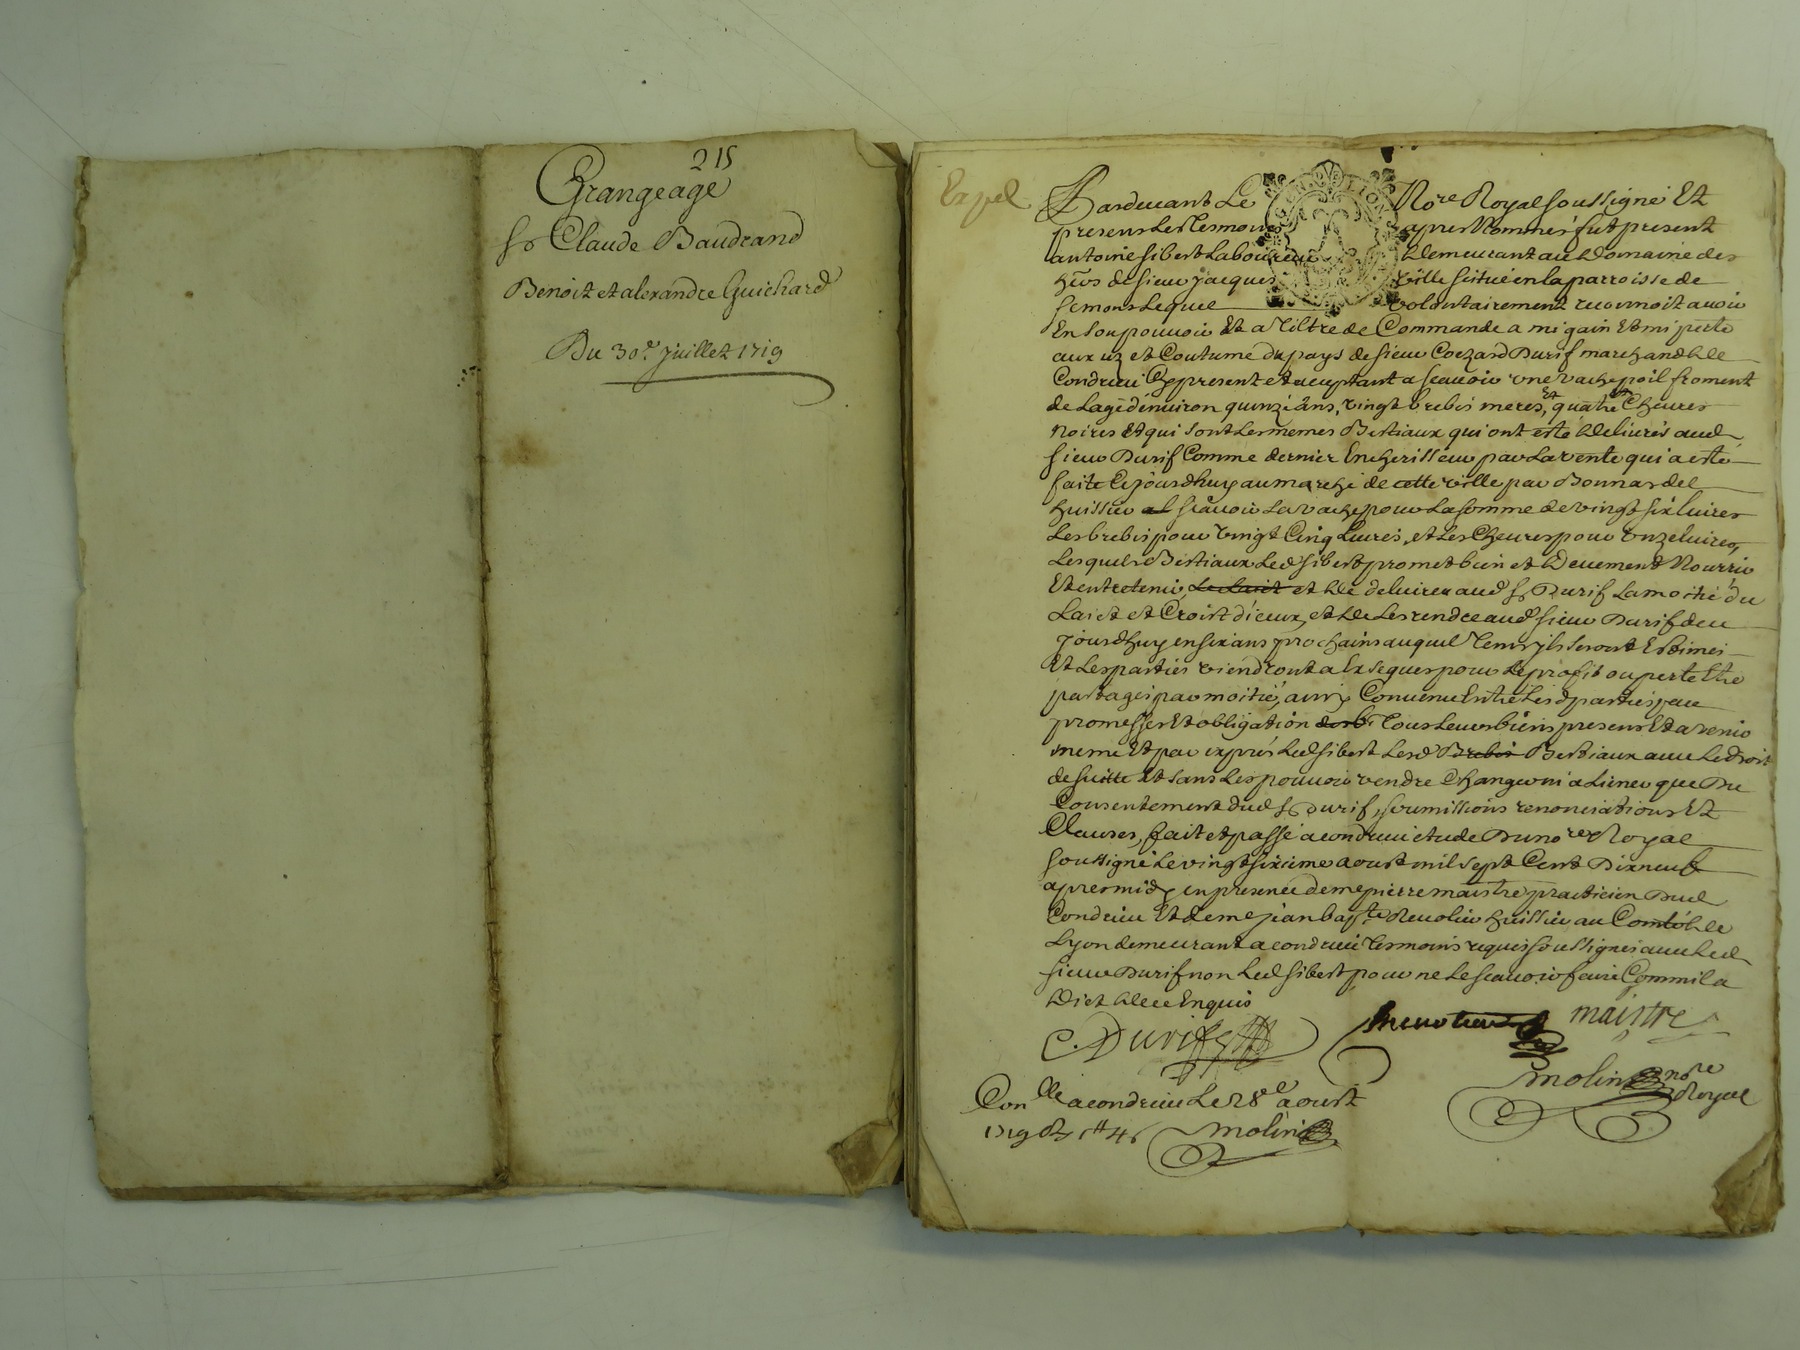 215
Grangeage
Sr Claude Baudrand
Benoit et alexandre Guichard
Du 30e. Juillet 1719
Expel
Pardevant Le Nore Royal soussigné Et
presens Les Tesmoins apres Nommés fut present
antoine sibert Laboureur Demeurant au Domaine des
hers de sieur jacques ville situé en la parroisse de
semons Lequel volontairement reconnoit avoir
En son pouvoir Et a Tiltre de Commande a mi gain Et mi perte
aux uz et Coutume du pays de sieur Durif marchand de
Condrieu Cy present et acceptant a scavoir une vache poil froment
de Lage d'environ quinze ans, vingt brebis meres, Et quatre Chevres
Noires Et qui sont Les memes Bestiaux qui ont esté Delivrés aud
sieur Durif Comme dernier Encherisseur par La vente qui a esté
faite Cejourdhuy au marché de cette ville par Bonnardel
huissier scavoir La vache pour La somme de vingt six livres
Les brebis pour vingt Cinq Livres, et Les Chevres pour onze livres,
Lesquels Bestiaux Led sibert promet bien et Deuement Nourrir
Et entretenir, Le Laict et De delivrer aud sr Durif La moitié du
Laict et Croist d'iceux, et de Les rendre aud sieur Durif de ce
Jourdhuy en six ans prochains auquel Tems ils seront Estimés
Et Les parties viendront a Exseguer pour Le profit ou perte Etre
partagés par moitié, ainsy Convenu Entre Lesd parties par
promesses Et obligation de Tous Leurs biens presens Et a venir
meme Et par exprés Led sibert Lesd Brebis Bestiaux avec Le droit
de suitte Et sans Les pouvoir vendre Changer ni aLiener que Du
Consentement dud sr Durif, soumissions renonciations Et
Clauses, fait et passé a condrieu etude Du nore Royal
soussigné Le vingt sixieme aoust mil sept Cent Dix neuf
apres midy en presence de me pierre maistre practicien Dud
Condrieu Et de me jean bapte Revolier huissier au Comté de
Lyon demeurant a condrieu Tesmoins requis soussignés avec Led
sieur Durif non Led sibert pour ne Le scavoir faire Comm il a
Dict De ce Enquis
C. Durif
maistre
molin nore
Royal
Conlle a condrieu Le 28e aoust
1719
molin